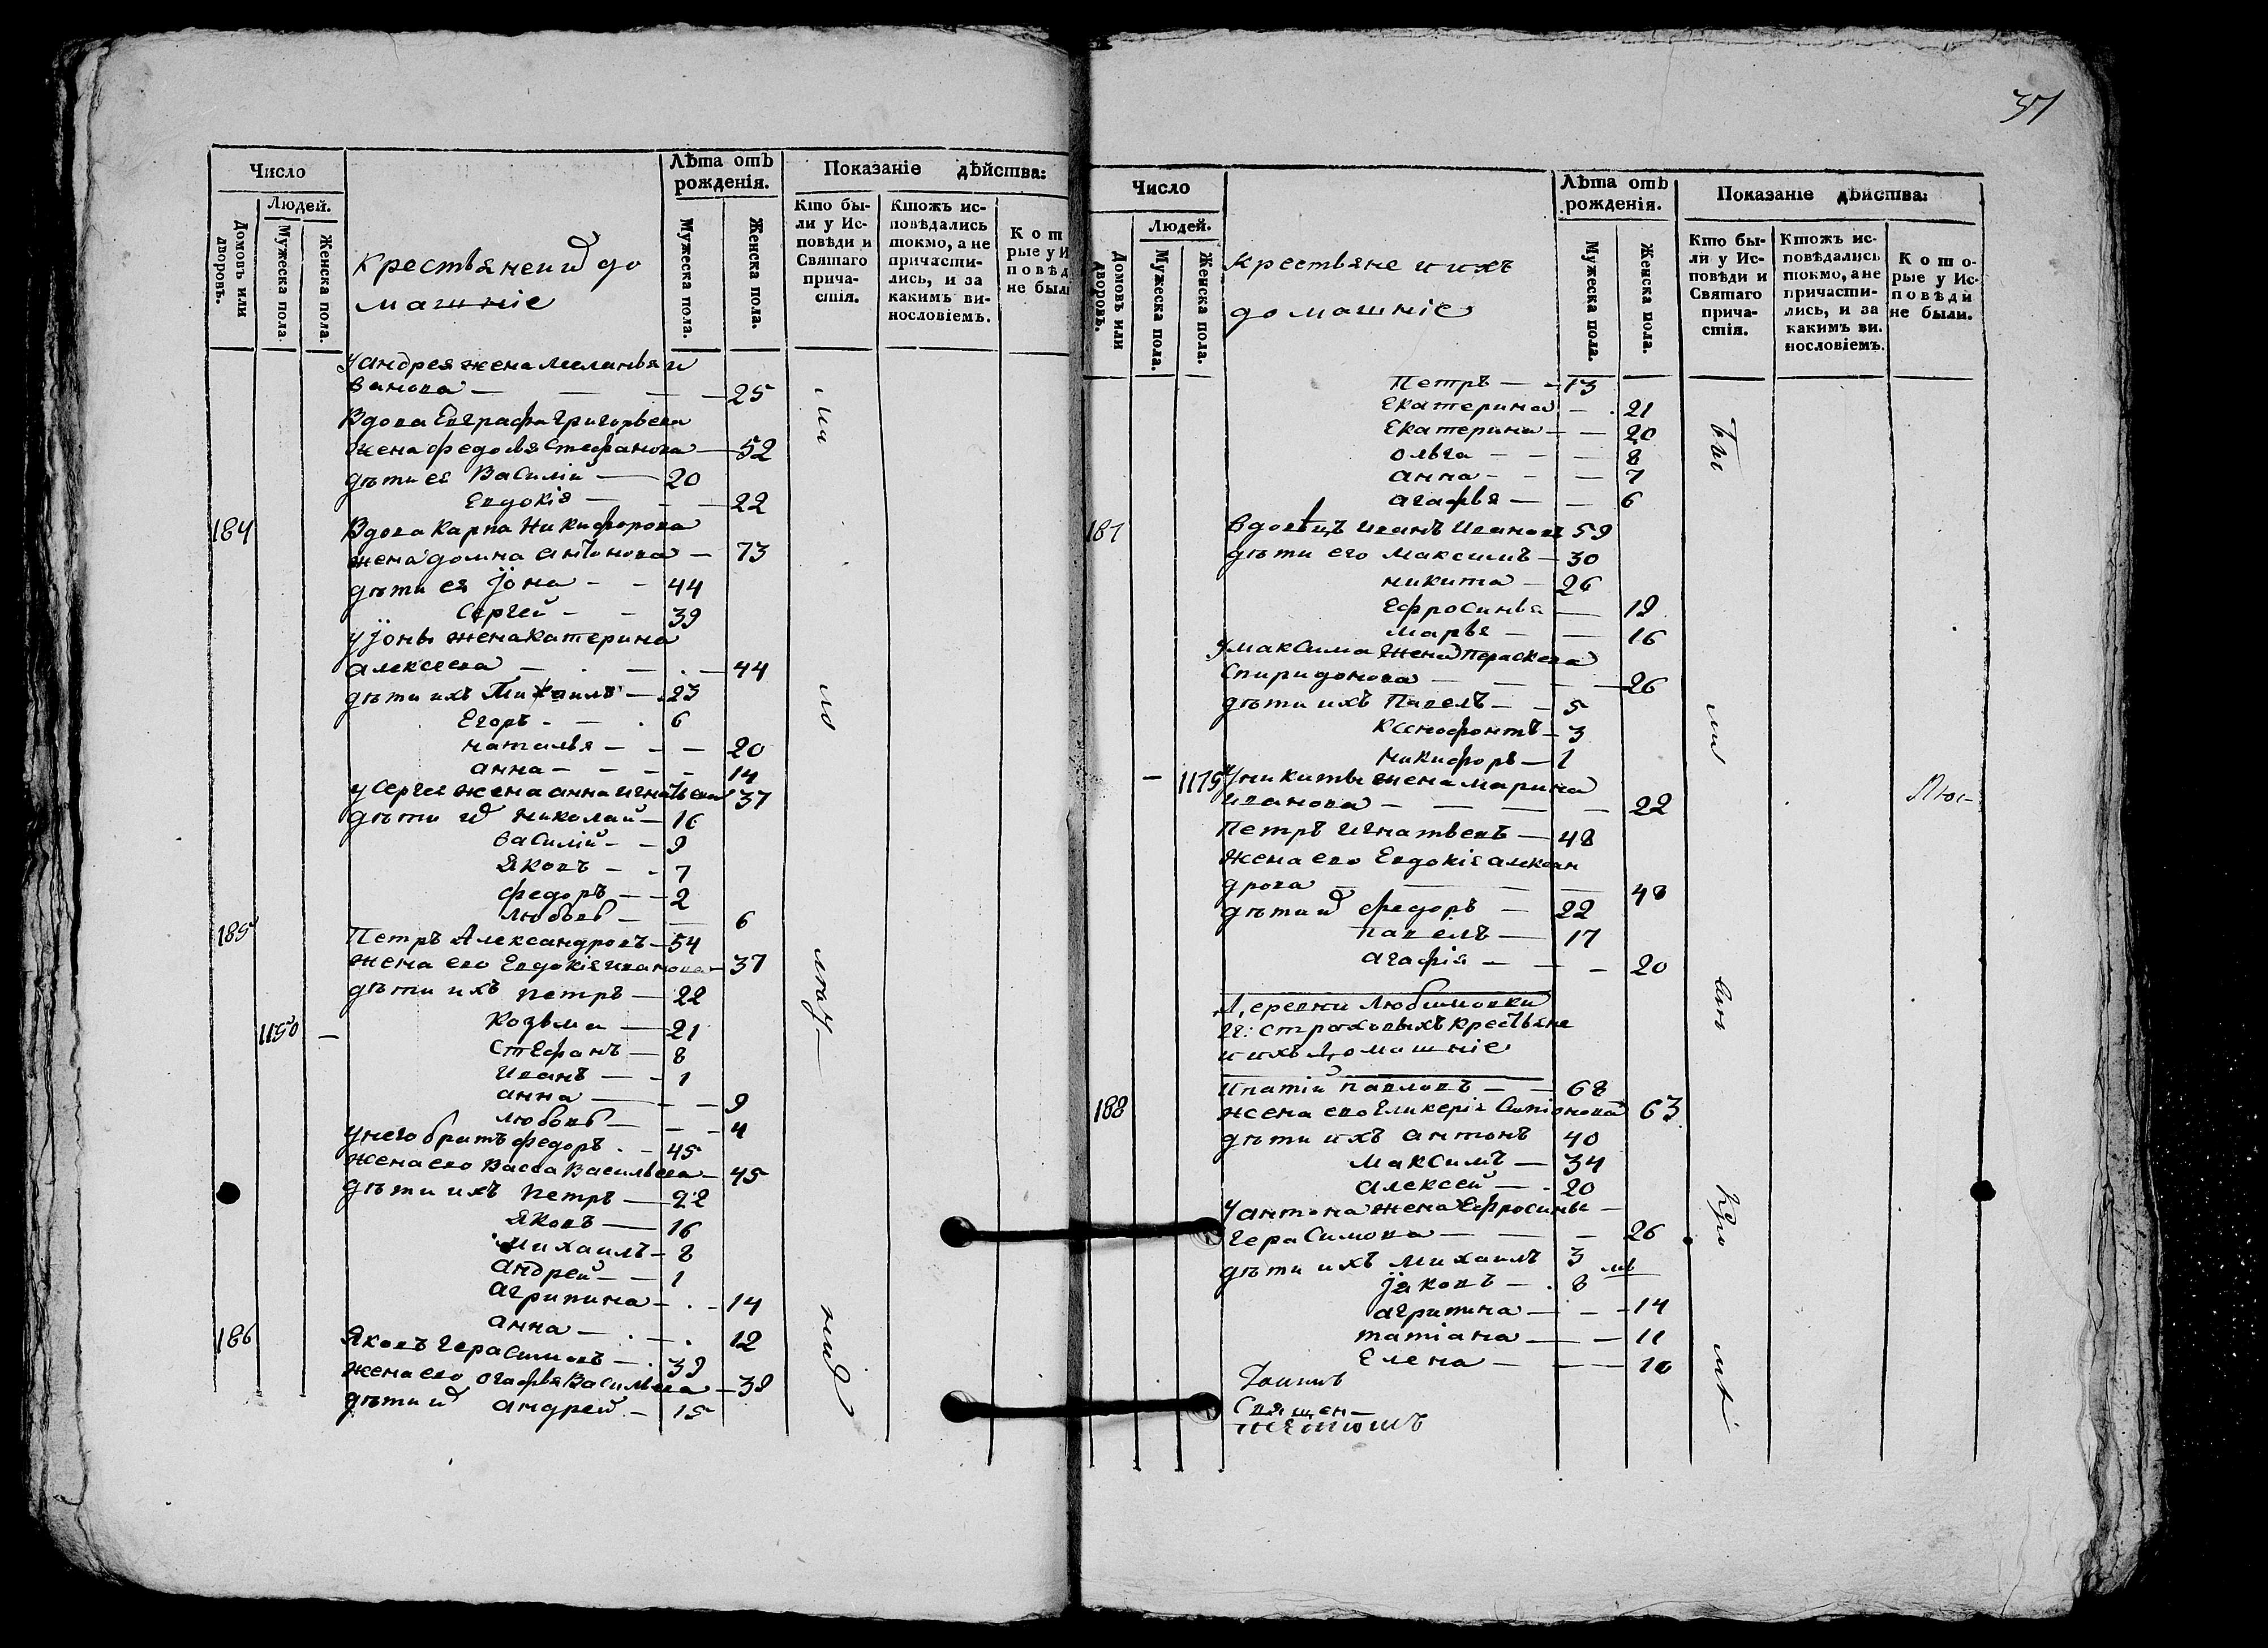 Число
Людей.
Домовъ или дворовъ.
Мужеска пола.
Женска пола.
Лѣта отъ рожденія.
Мужеска пола.
Женска пола.
Показаніе дѣйства:
Кто бы-
ли у Ис-
повѣди и
Святаго
прича-
стія.
Ктожъ ис-
повѣдались
токмо, а не
причасти-
лись, и за
какимъ ви-
нословіемъ.
К о т
рые у И
п о в ѣ д
не был
крестьяне и до
машніе
У андрея жена меланья и
ванова — 25
Вдова Евграфа Григорьева
жена федосья Стефанова — 52
дѣти ея Василій — 20
Евдокія — 22
184 Вдова Карпа Никифорова
жена домна антонова — 73
дѣти ея Іона — 44
Сергей — 39
у Іоны жена катерина
алексеева — 44
дѣти ихъ Михаилъ — 23
Егоръ — 6
наталья — 20
анна — 14
у Сергея жена анна игнатьева 37
дѣти николай — 16
василій — 9
Яковъ — 7
федоръ — 2
любовь — 6
185 Петръ Александровъ — 54
жена его Евдокія иванова — 37
дѣти ихъ петръ — 22
1150 — козьма — 21
стефанъ — 8
иванъ — 1
анна — 9
любовь — 4
у него братъ федоръ — 45
жена его Васса Васильева — 45
дѣти ихъ петръ — 22
Яковъ — 16
михаилъ — 8
андрей — 1
агрипина — 14
анна — 12
186 Яковъ Герасимовъ — 39
жена его огафья Васильева — 39
дѣти андрей — 15
37
Число
Людей.
Домовъ или дворовъ.
Мужеска пола.
Женска пола.
Лѣта отъ рожденія.
Мужеска пола.
Женска пола.
Показаніе дѣйства:
Кто бы-
ли у Ис-
повѣди и
Святаго
прича-
стія.
Ктожъ ис-
повѣдались
токмо, а не
причасти-
лись, и за
какимъ ви-
нословіемъ.
К о т о-
рые у Ис-
п о в ѣ д и
не были.
крестьяне и ихъ
домашніе
Петръ — 13
екатерина — 21
екатерина — 20
ольга — 8
анна — 7
агафья — 6
187 вдовецъ иванъ ивановъ 59
дѣти его максимъ — 30
никита — 26
ефросинья — 19
марья — 16
у максима жена параскева
Спиридонова — 26
дѣти ихъ Павелъ — 5
ксенофонтъ — 3
никифоръ — 1
— 1175 У никиты жена марина
иванова — 22
Петръ игнатьевъ — 48
жена его Евдокія алексан
дрова — 48
дѣти федоръ — 22
павелъ — 17
агафія — 20
Деревни любимовки
Гг: Страховыхъ крестьяне
и ихъ домашніе
188 ипатій павловъ — 68
жена его гликерія 63
дѣти ихъ антонъ 40
максимъ — 34
алексей — 20
У антона жена ефросинья —
герасимова — 26
дѣти ихъ михаилъ 3
Іаковъ — 8
агрипина — 14
татіана — 11
Елена — 10
Священ-